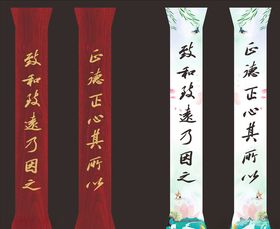 正德正心其所以
致和致遠乃因之
正德正心其所以
致和致遠乃因之